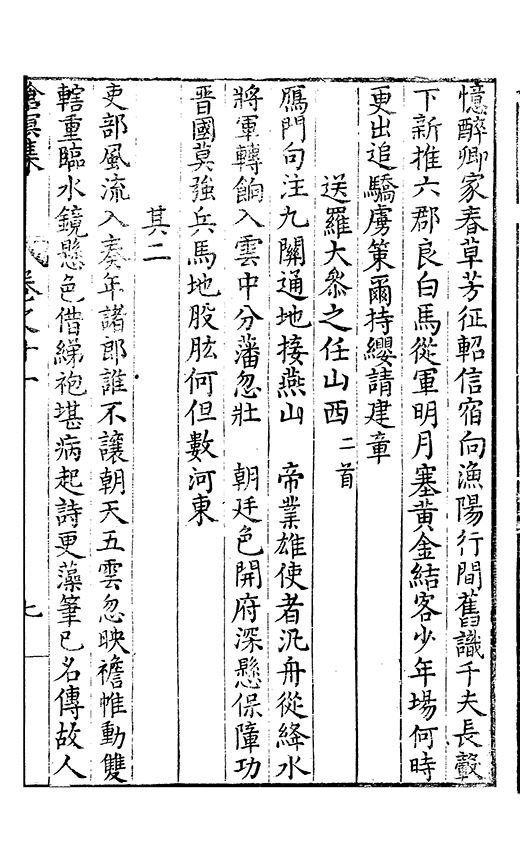 憶醉卿家春草芳征軺信宿向漁陽行間舊識千夫長轂
下新推六郡良白馬從軍明月塞黃金結客少年場何時
更出追驕虜策爾持纓請建章
送羅大參之任山西二首
鴈門句注九關通地接燕山 帝業雄使者汎舟從絳水
將軍轉餉入雲中分藩忽壯 朝廷色開府深懸保障功
晉國莫強兵馬地股肱何但數河東
其二
吏部風流入奏年諸郎誰不讓朝天五雲忽映襜帷動雙
轄重臨水鏡懸色借綈袍堪病起詩更藻筆已名傳故人
滄溟集 卷之十一 七